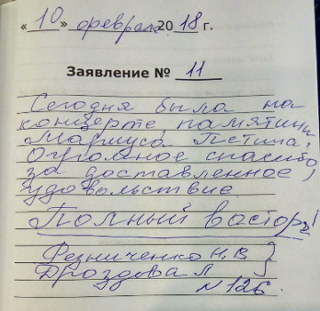 «10» февраля 2018 г.
Заявление № 11
Сегодня была на
концерте памяти
Мариуса Петипа.
Огромное спасибо
за доставленное
удовольствие
Полный восторг!
Резниченко Н.В.
Дроздова Л
N 126.